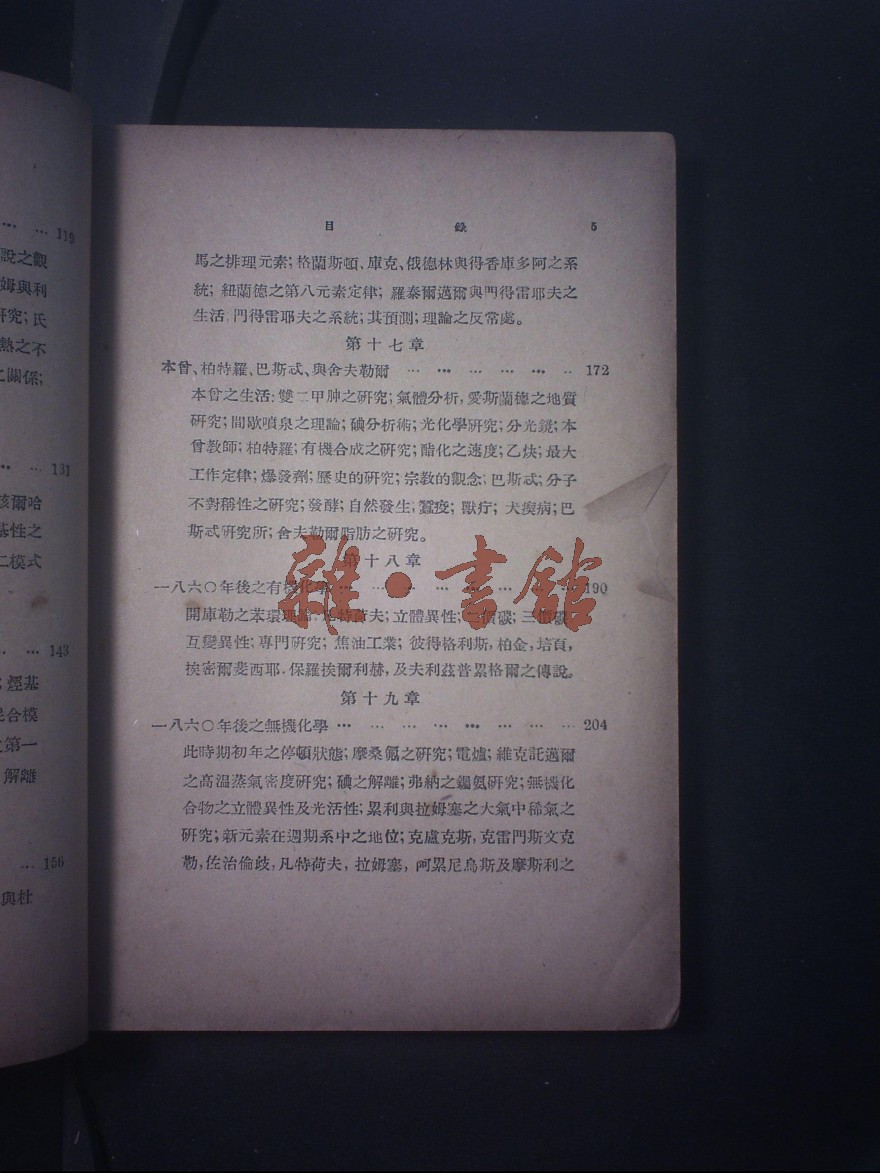 目錄 5
馬之排理元素;格蘭斯頓、庫克、俄德林與得香庫多阿之系
統;紐蘭德之第八元素定律;羅泰爾邁爾與門得雷耶夫之
生活;門得雷耶夫之系統;其預測;理論之反常處。
第十七章
本曾、柏特羅、巴斯忒、與舍夫勒爾 … … … … … ‥ 172
本曾之生活;雙二甲胂之研究;氣體分析,愛斯蘭德之地質
研究;間歇噴泉之理論;碘分析術;光化學研究;分光鏡;本
曾教師;柏特羅;有機合成之研究;酯化之速度;乙炔;最大
工作定律;爆發劑;歷史的研究;宗教的觀念;巴斯忒;分子
不對稱性之研究;發酵;自然發生;蠶疫;獸疔;犬瘈病;巴
斯忒研究所;舍夫勒爾脂肪之研究。
第十八章
一八六〇年後之有機化學 … … … … … … … 190
開庫勒之苯環理論;凡特荷夫;立體異性;二價碳;三價碳;
互變異性;專門研究;焦油工業;彼得格利斯,柏金,培頁,
挨密爾斐西耶,保羅挨爾利赫,及夫利茲普累格爾之傳說。
第十九章
一八六〇年後之無機化學 … … … … … … … 204
此時期初年之停頓狀態;摩桑氟之研究;電爐;維克託邁爾
之高温蒸氣密度研究;碘之解離;弗納之錫氨研究;無機化
合物之立體異性及光活性;累利與拉姆塞之大氣中稀氣之
研究;新元素在週期系中之地位;克盧克斯,克雷門斯文克
勒,佐治倫歧,凡特荷夫,拉姆塞,阿累尼烏斯及摩斯利之
119
說之觀
姆與利
研究;氏
熱之不
之關係;
131
該爾哈
基性之
二模式
143
;烴基
混合模
之第一
解離
156
與杜
雜·書館